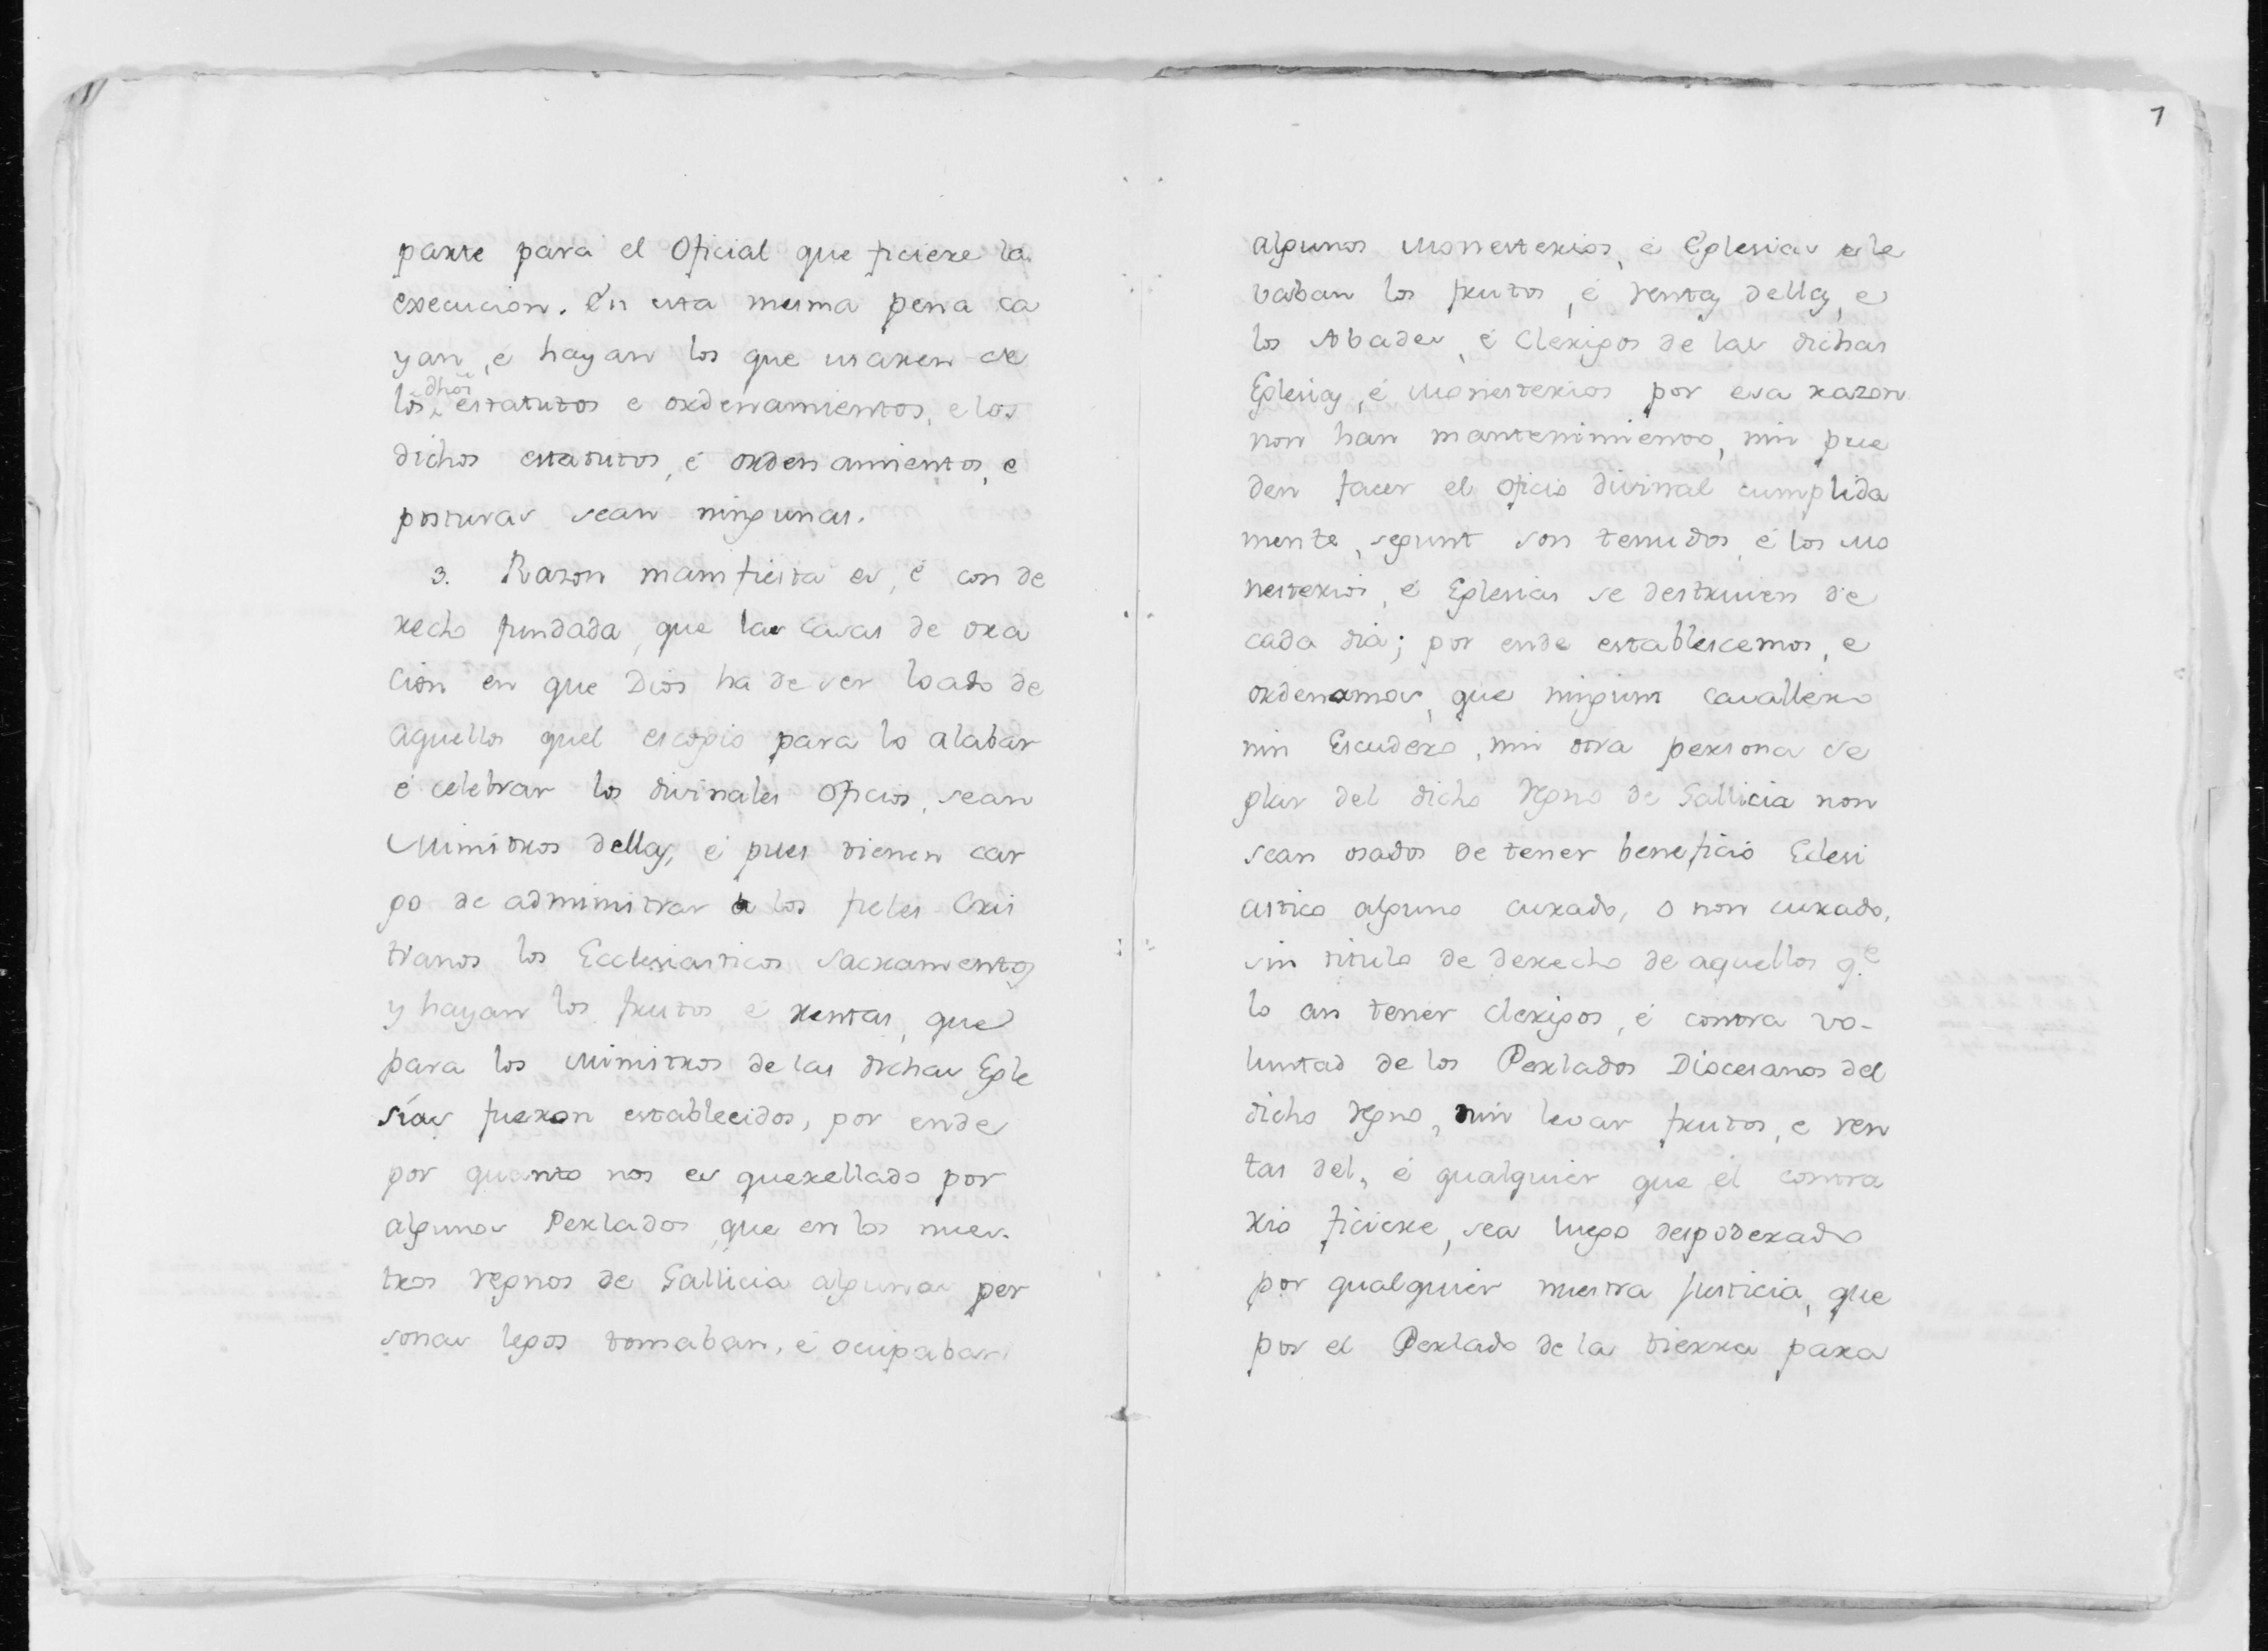 parte para el Oficial que ficiere la
execucion. En esta mesma pena ca
yan, é hayan los que usaren de
los dhos estatutos e ordenamientos, e los
dichos estatutos, é ordenamientos, e
posturas sean ningunas.
3. Razon manifiesta es, é con de
recho fundada, que las casas de ora
cion en que Dios ha de ser loado de
aquellos quel escogio para lo alabar
é celebrar los divinales oficios, sean
Ministros dellas, é pues tienen car
go de administrar a los fieles Cris
tianos los Ecclesiasticos sacramentos
y hayan los frutos, é rentas, que
para los Ministros de las dichas Egle
sias fueron establecidos, por ende
por quanto nos es querellado por
algunos Perlados que en los nues-
tros regnos de Gallicia algunas per
sonas legos tomaban, é ocupaban
7
algunos Monesterios, é Eglesias e le
vaban los frutos, é rentas dellas, e
los Abades, é Clerigos de las dichas
Eglesias, é Monesterios por esa razon
non han mantenimientos, nin pue
den facer el oficio divinal cumplida
mente, segunt son tenudos, é los Mo
nesterios, é Eglesias se destruien de
cada dia; por ende establescemos, e
ordenamos, que ningunt cavallero
nin Escudero, nin otra persona se
glar del dicho regno de Gallicia non
sean osados de tener beneficio Eclesi
astico alguno curado, o non curado,
sin titulo de derecho de aquellos q.e
lo an tener clerigos, é contra vo-
luntad de los Perlados Diocesanos del
dicho regno, nin levar frutos, e ren
tas del, é qualquier que el contra
rio ficiere, sea luego despoderado
por qualquier nuestra justicia, que
por el Perlado de la tierra para